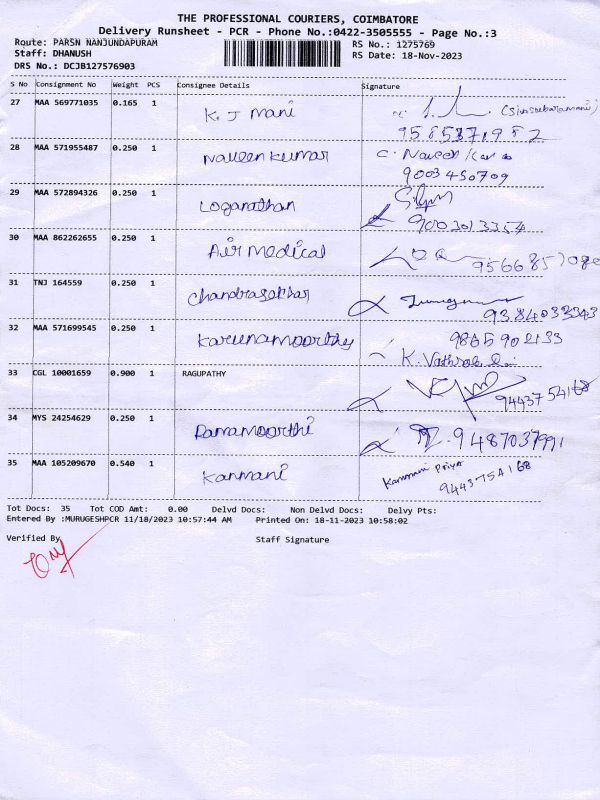 THE PROFESSIONAL COURIERS, COIMBATORE
Delivery Runsheet - PCR - Phone No.:0422-3505555 - Page No.:3
Route: PARSN NANJUNDAPURAM
RS No.: 1275769
Staff: DHANUSH
RS Date: 18-Nov-2023
DRS No.: DCJB127576903
S No Consignment No Weight PCS Consignee Details Signature
27 MAA 569771035 0.165 1 K. J Mani
9585371982
28 MAA 571955487 0.250 1 Naveen kumar C. Naveen
9003450709
29 MAA 572894326 0.250 1 Loganathan
9003013354
30 MAA 862262655 0.250 1 Air medical
31 TNJ 164559 0.250 1 Chandrasekhar
9384033343
32 MAA 571699545 0.250 1 Karunamoorthy
K.
33 CGL 10001659 0.900 1 RAGUPATHY
94437 54168
34 MYS 24254629 0.250 1 Ramamoorthi 9487037991
35 MAA 105209670 0.540 1 Kanmani Kanmani Priya
9443754168
Tot Docs: 35 Tot COD Amt: 0.00 Delvd Docs: Non Delvd Docs: Delvy Pts:
Entered By :MURUGESHPCR 11/18/2023 10:57:44 AM Printed On: 18-11-2023 10:58:02
Verified By Staff Signature